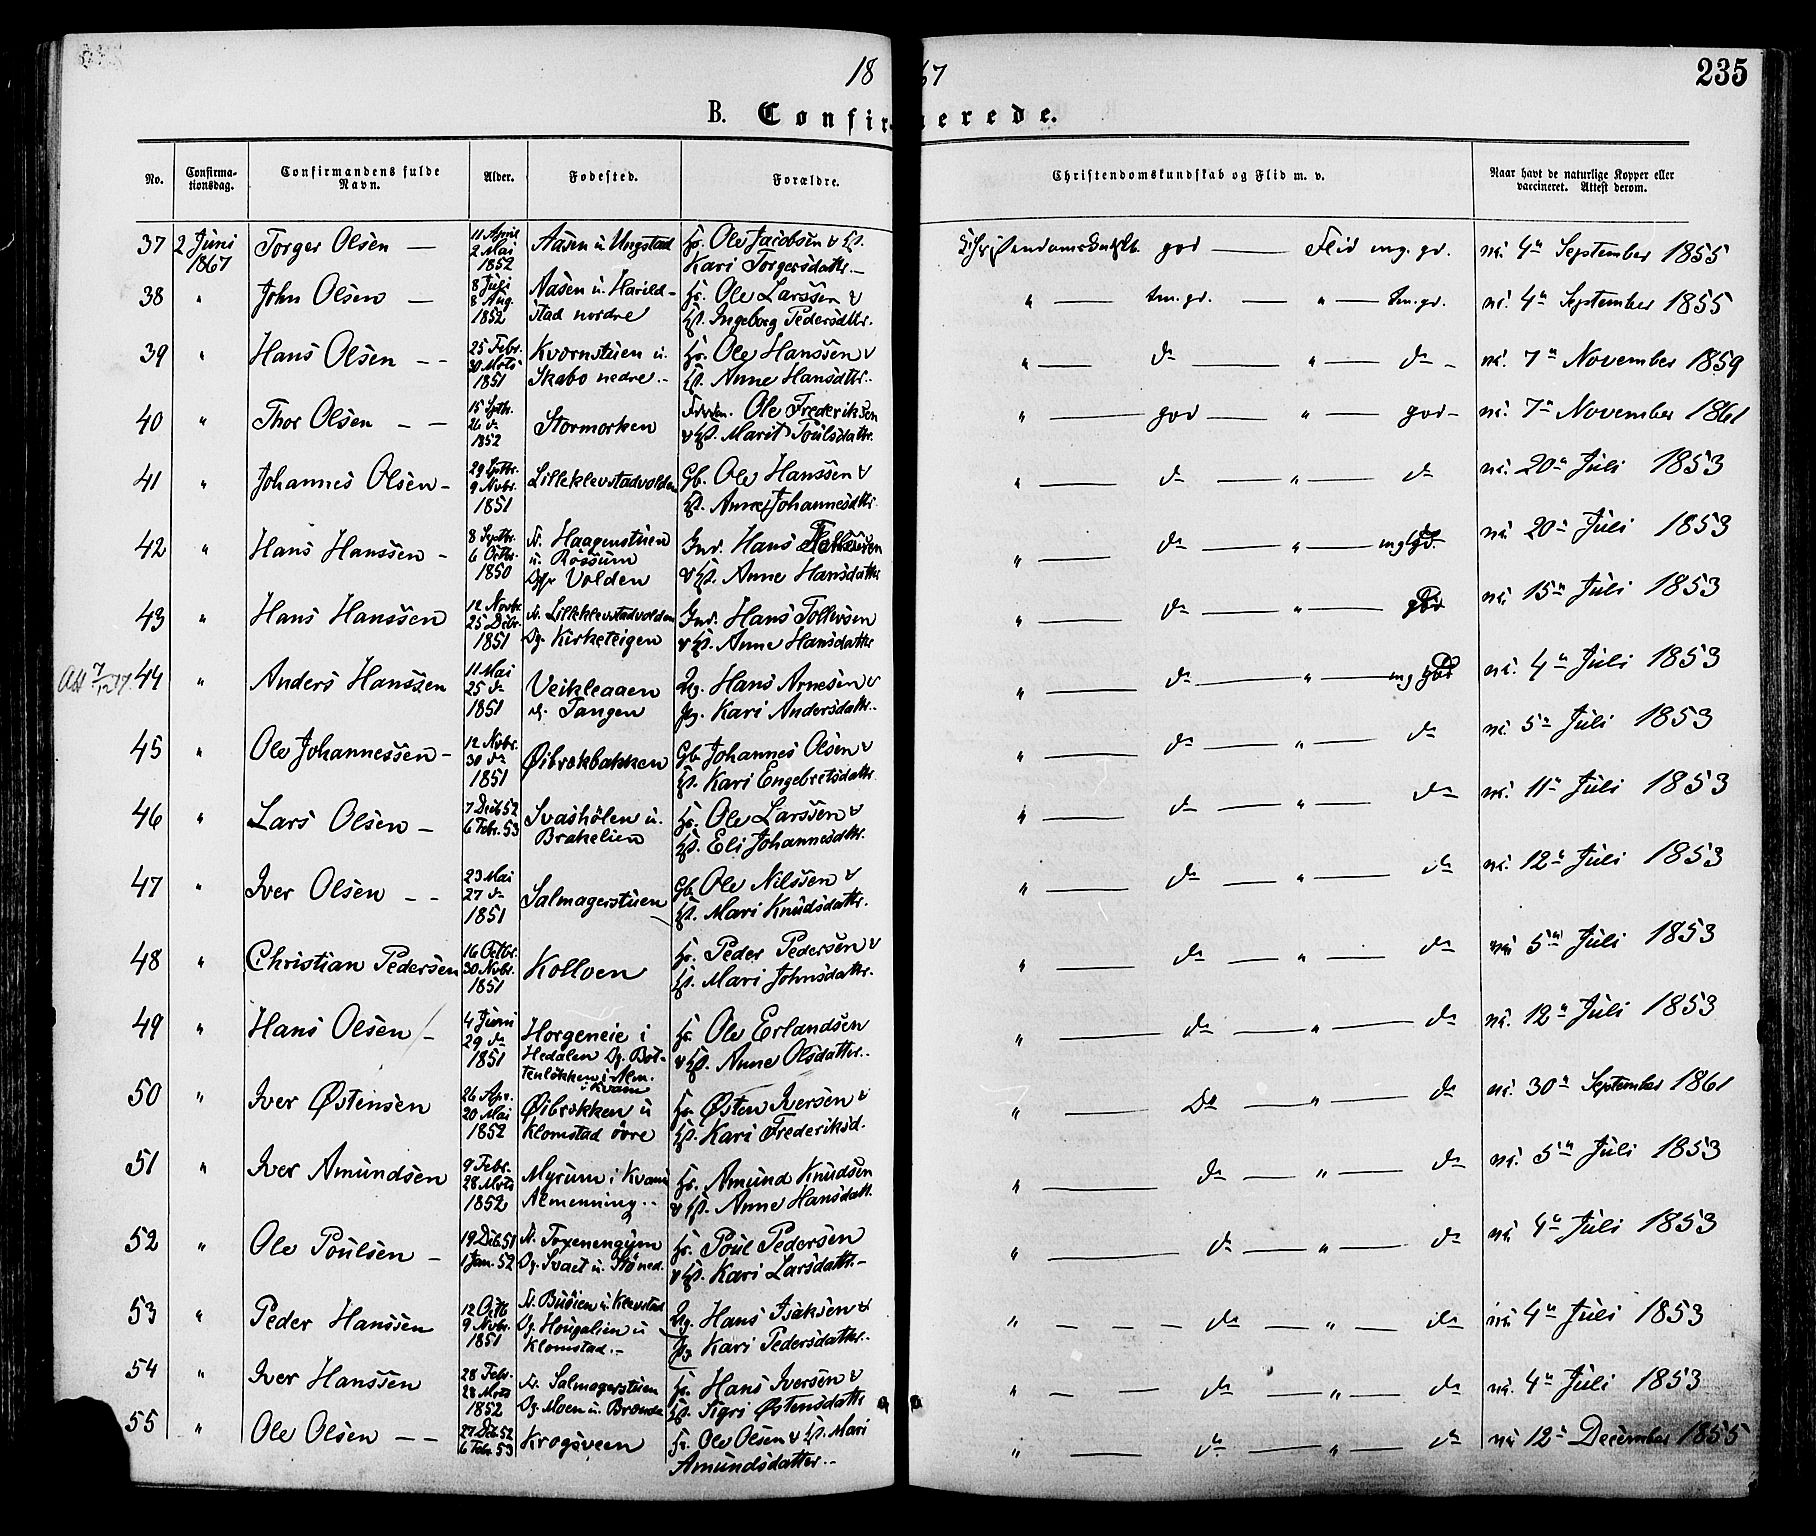 1867
235
B. Confirmerede.
No. Confirmationsdag. Confirmandens fulde Navn. Alder. Fødested. Forældre. Christendomskundskab og Flid m. v. Naar havt de naturlige Kopper eller vaccineret. Attest derom.
37 2 Juni 1867 Torger Olsen — 11 April 2 Mai 1852 Aasen u. Ungstad Hr. Ole Jacobsen & Hst. Kari Torgersdatter.— Christendomskundskb god — Flid mg. gd. vs. 4de September 1855
38 " John Olsen — 8 Juli 8 Aug. 1852 Aasen u. Harildstad nordre Hr. Ole Larssen & Hst. Ingeborg Pedersdtr. " — tm. gd. — " — tm. gd. vs. 4de September 1855
39 " Hans Olsen — — 25 Febr. 30 Mrts 1851 Kvornstuen u. Skabo nedre.. Hr. Ole Hanssen & Hst. Anne Hansdtr.. " — do — " — do — vs. 7de November 1859
40 " Thor Olsen — — 15 Sptbr. 26 do 1852 Stormorken Ole Frederiksen & Hst. Marit Poulsdatter. " — god — " — god — vs. 7de November 1861
41 " Johannes Olsen — 29 Sptbr. 9 Nvbr. 1851 Lilleklevstadvolden Gb. Ole Hanssen & Hst. Anne Johannesdtr " — do — " — do vs. 20de Juli 1853
42 " Hans Hanssen — 8 Septbr. 6 Octbr. 1850 Fr. Haagenstuen u. Rossum Volden Ind. Hans & Hst. Anne Hansdatter " — do — " — mg gd. vs. 20de Juli 1853
43 " Hans Hanssen 12 Novbr. 25 Dcbr. 1851 Fr. Lilleklevstadvolden Dg. Kirketeigen Ind. Hans Tollevsen & Hst. Anne Hansdatter " — do — " — god vs. 15de Juli 1853
Att 7/12 17. 44 " Anders Hanssen 11 Mai 25 do 1851 Veikleaaen Tangen Ug. Hans Arnesen & Pg. Kari Andersdatter.. " — do — " — mg god vs. 4de Juli 1853
45 " Ole Johannessen — 12 Nvbr. 30 do 1851 Øibrekbakken Gb. Johannes Olsen & Hst. Kari Engebretsdatter " — do — " — do vs. 5te Juli 1853
46 " Lars Olsen — 7 Dcb. 52 6 Febr. 53 Svashölen u. Brakelien Hr. Ole Larssen & Hst. Eli Johannesdtr. " — do — " — do vs. 11te Juli 1853
47 " Iver Olsen — — 23 Mai 27 do 1851 Salmagerstuen Gb. Ole Nilssen & Hst. Mari Knudsdatter. " — do — " — do vs. 12te Juli 1853
48 " Christian Pedersen 16 Octbr. 30 Nvbr. 1851 Kollven Hr. Peder Pedersen & Hst. Mari Johnsdatter. " — do — " — do vs. 5te Juli 1853
49 " Hans Olsen — 4 Juni 29 do 1851 Horgeneie i Hedalen Dg. Bottenløkken i Alm. i Kvam Hr. Ole Erlandsen & Hst. Anne Olsdatter.. " — do — " — do vs. 12te Juli 1853
50 " Iver Østensen 26 Apr. 20 Mai 1852 Øibrekken u Klomstad øvre Hr. Østen Iversen & Hst. Kari Frederiksd. " — Do — " — do vs. 30te September 1861
51 " Iver Amundsen 9 Febr. 28 Mrts 1852 Myrum i Kvam Almenning.. Hr. Amund Knudsen & Hst. Anne Hansdatt. " — do — " — do vs. 5te Juli 1853
52 " Ole Poulsen — 19 Dcb. 51 1 Jan. 52 Fr. Dg. Svaet u. Hr. Poul Pedersen & Hst. Kari Larsdatter.— " — do — " — do vs. 4de Juli 1853
53 " Peder Hanssen 12 Octb 9 Nvbr. 1851 Fr. Busien u. Klevstad Dg. Hougalien u Klomstad.— Ug. Hans Isaksen & Pg. Kari Pedersdatter.. " — — — do — " — do vs. 4de Juli 1853
54 " Iver Hanssen 28 Febr. 28 Mrts 1852 Fr. Salmagerstuen Dg. Moen u. Hr. Hans Iversen & Hst. Sigri Østensdattr " — — do — " — do vs. 4de Juli 1853
55 " Ole Olsen — — 27 Dcb. 52 6 Febr. 53 Krogsveen Hr. Ole Olsen & Hst. Mari Amundsdatter.. " — do — " — do vs. 12te December 1855